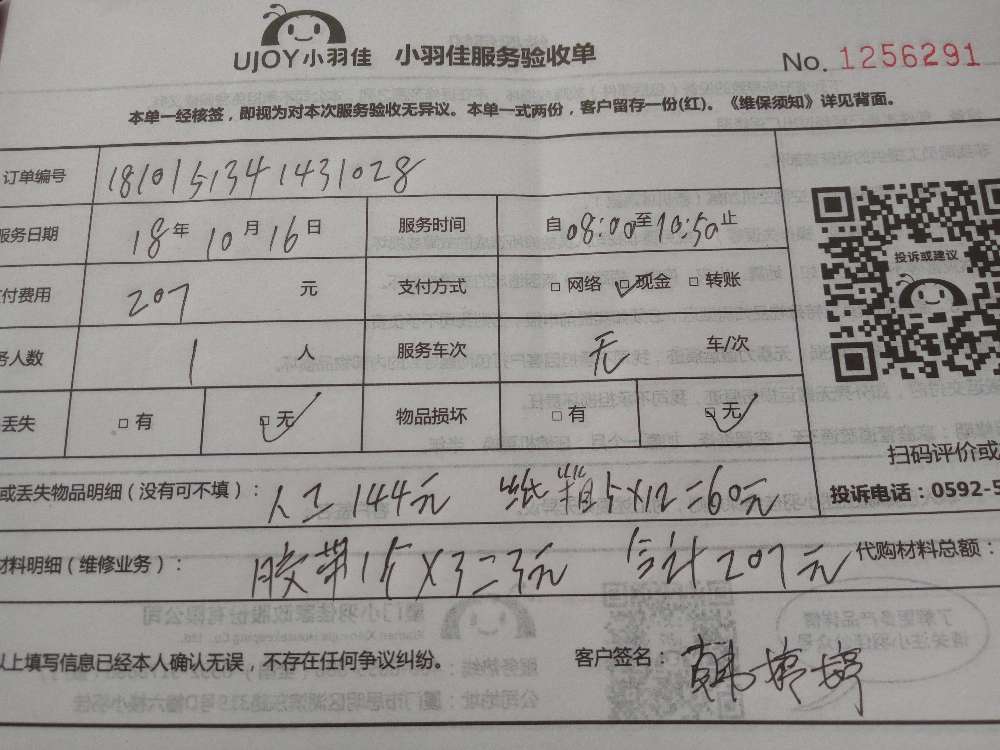 UJOY小羽佳 小羽佳服务验收单
No. 1256291
本单一经核签，即视为对本次服务验收无异议。本单一式两份，客户留存一份(红)。《维保须知》详见背面。
订单编号 1810151341431028
服务日期 18年10月16日 服务时间 自08:00至10:50止
付费用 207元 支付方式 □网络 ☑现金 □转账
务人数 1人 服务车次 无 车/次
丢失 □有 ☑无 物品损坏 □有 ☑无
投诉或建议
扫码评价或
投诉电话：0592-5
或丢失物品明细（没有可不填）： 人工144元 纸箱5×12=60元
材料明细（维修业务）： 胶带1个×3=3元 合计207元 代购材料总额：
以上填写信息已经本人确认无误，不存在任何争议纠纷。 客户签名：